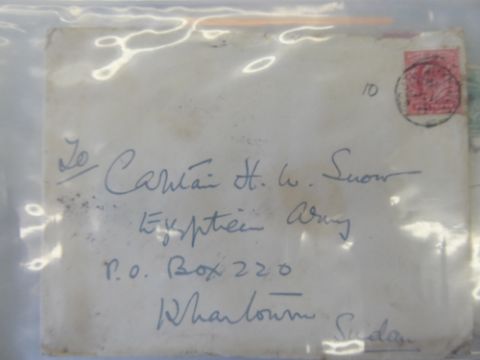 10
To
Captain H. W. Snow
Egyptian Army
P.O. Box 220
Khartoum
Sudan